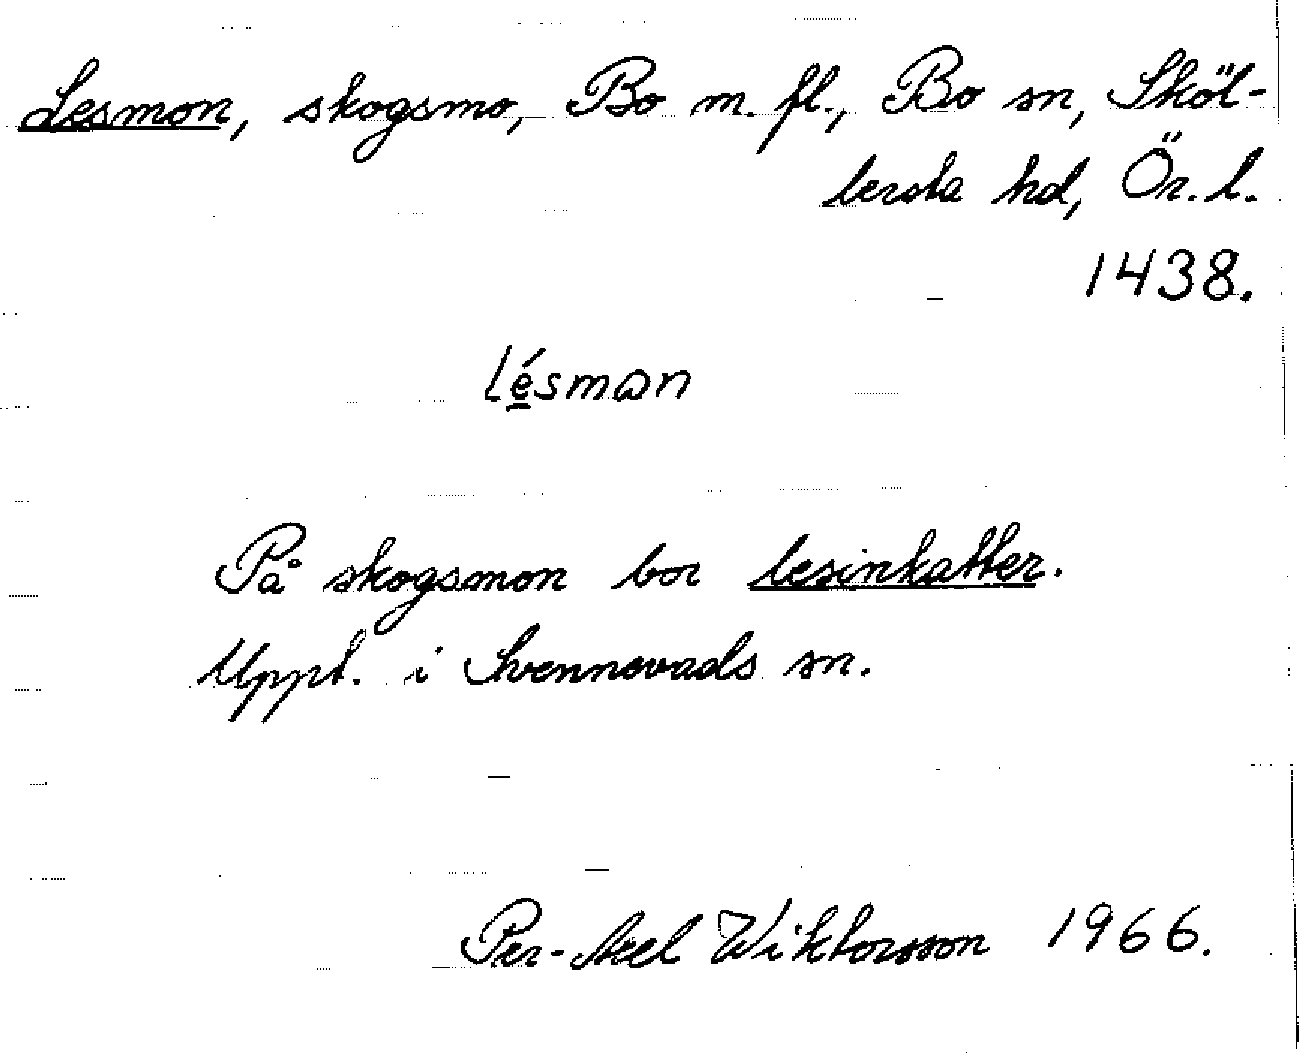 Lesmon, skogsmo, Bo m. fl., Bo sn, Sköl-
lersta hd, Ör. l.
1438.
Lé̲smɷn
På skogsmon bor lesinkatter.
Uppt. i Svennevads sn.
Per-Axel Wiktorsson 1966.